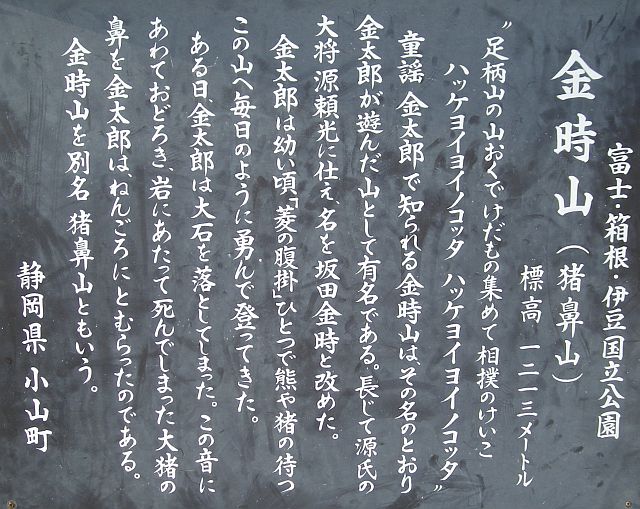 富士・箱根・伊豆国立公園
金時山（猪鼻山）
標高 一二一三メートル
"足柄山の山おくでけだもの集めて相撲のけいこ
ハッケヨイヨイノコッタ ハッケヨイヨイノコッタ"
童謡 金太郎で知られる金時山は、その名のとおり
金太郎が遊んだ山として有名である。長じて源氏の
大将源頼光に仕え、名を坂田金時と改めた。
金太郎は幼い頃、「菱の腹掛」ひとつで熊や猪の待つ
この山へ毎日のように勇んで登ってきた。
ある日、金太郎は大石を落としてしまった。この音に
あわておどろき、岩にあたって死んでしまった大猪の
鼻を金太郎は、ねんごろにとむらったのである。
金時山を別名 猪鼻山ともいう。
静岡県 小山町